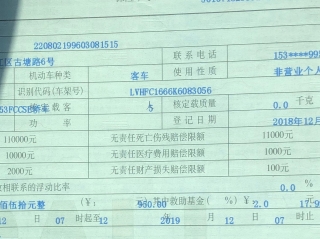 220802199603081515
区古塘路6号 联系电话 153****
机动车种类 客车 使用性质 非营业个人
识别代码(车架号) LVHFC1666K6083056
53PCCSE轿车 核定载客 5 核定载质量 0.0 千克
功率 登记日期 2018年12月
110000元 无责任死亡伤残赔偿限额 11000元
10000元 无责任医疗费用赔偿限额 1000元
2000元 无责任财产损失赔偿限额 100元
故相联系的浮动比率 0.0 %
佰伍拾元整 (¥: 950.00 其中救助基金( 2.0 %)¥: 17.9
12 月 07 时起至 2019 年 12 月 07